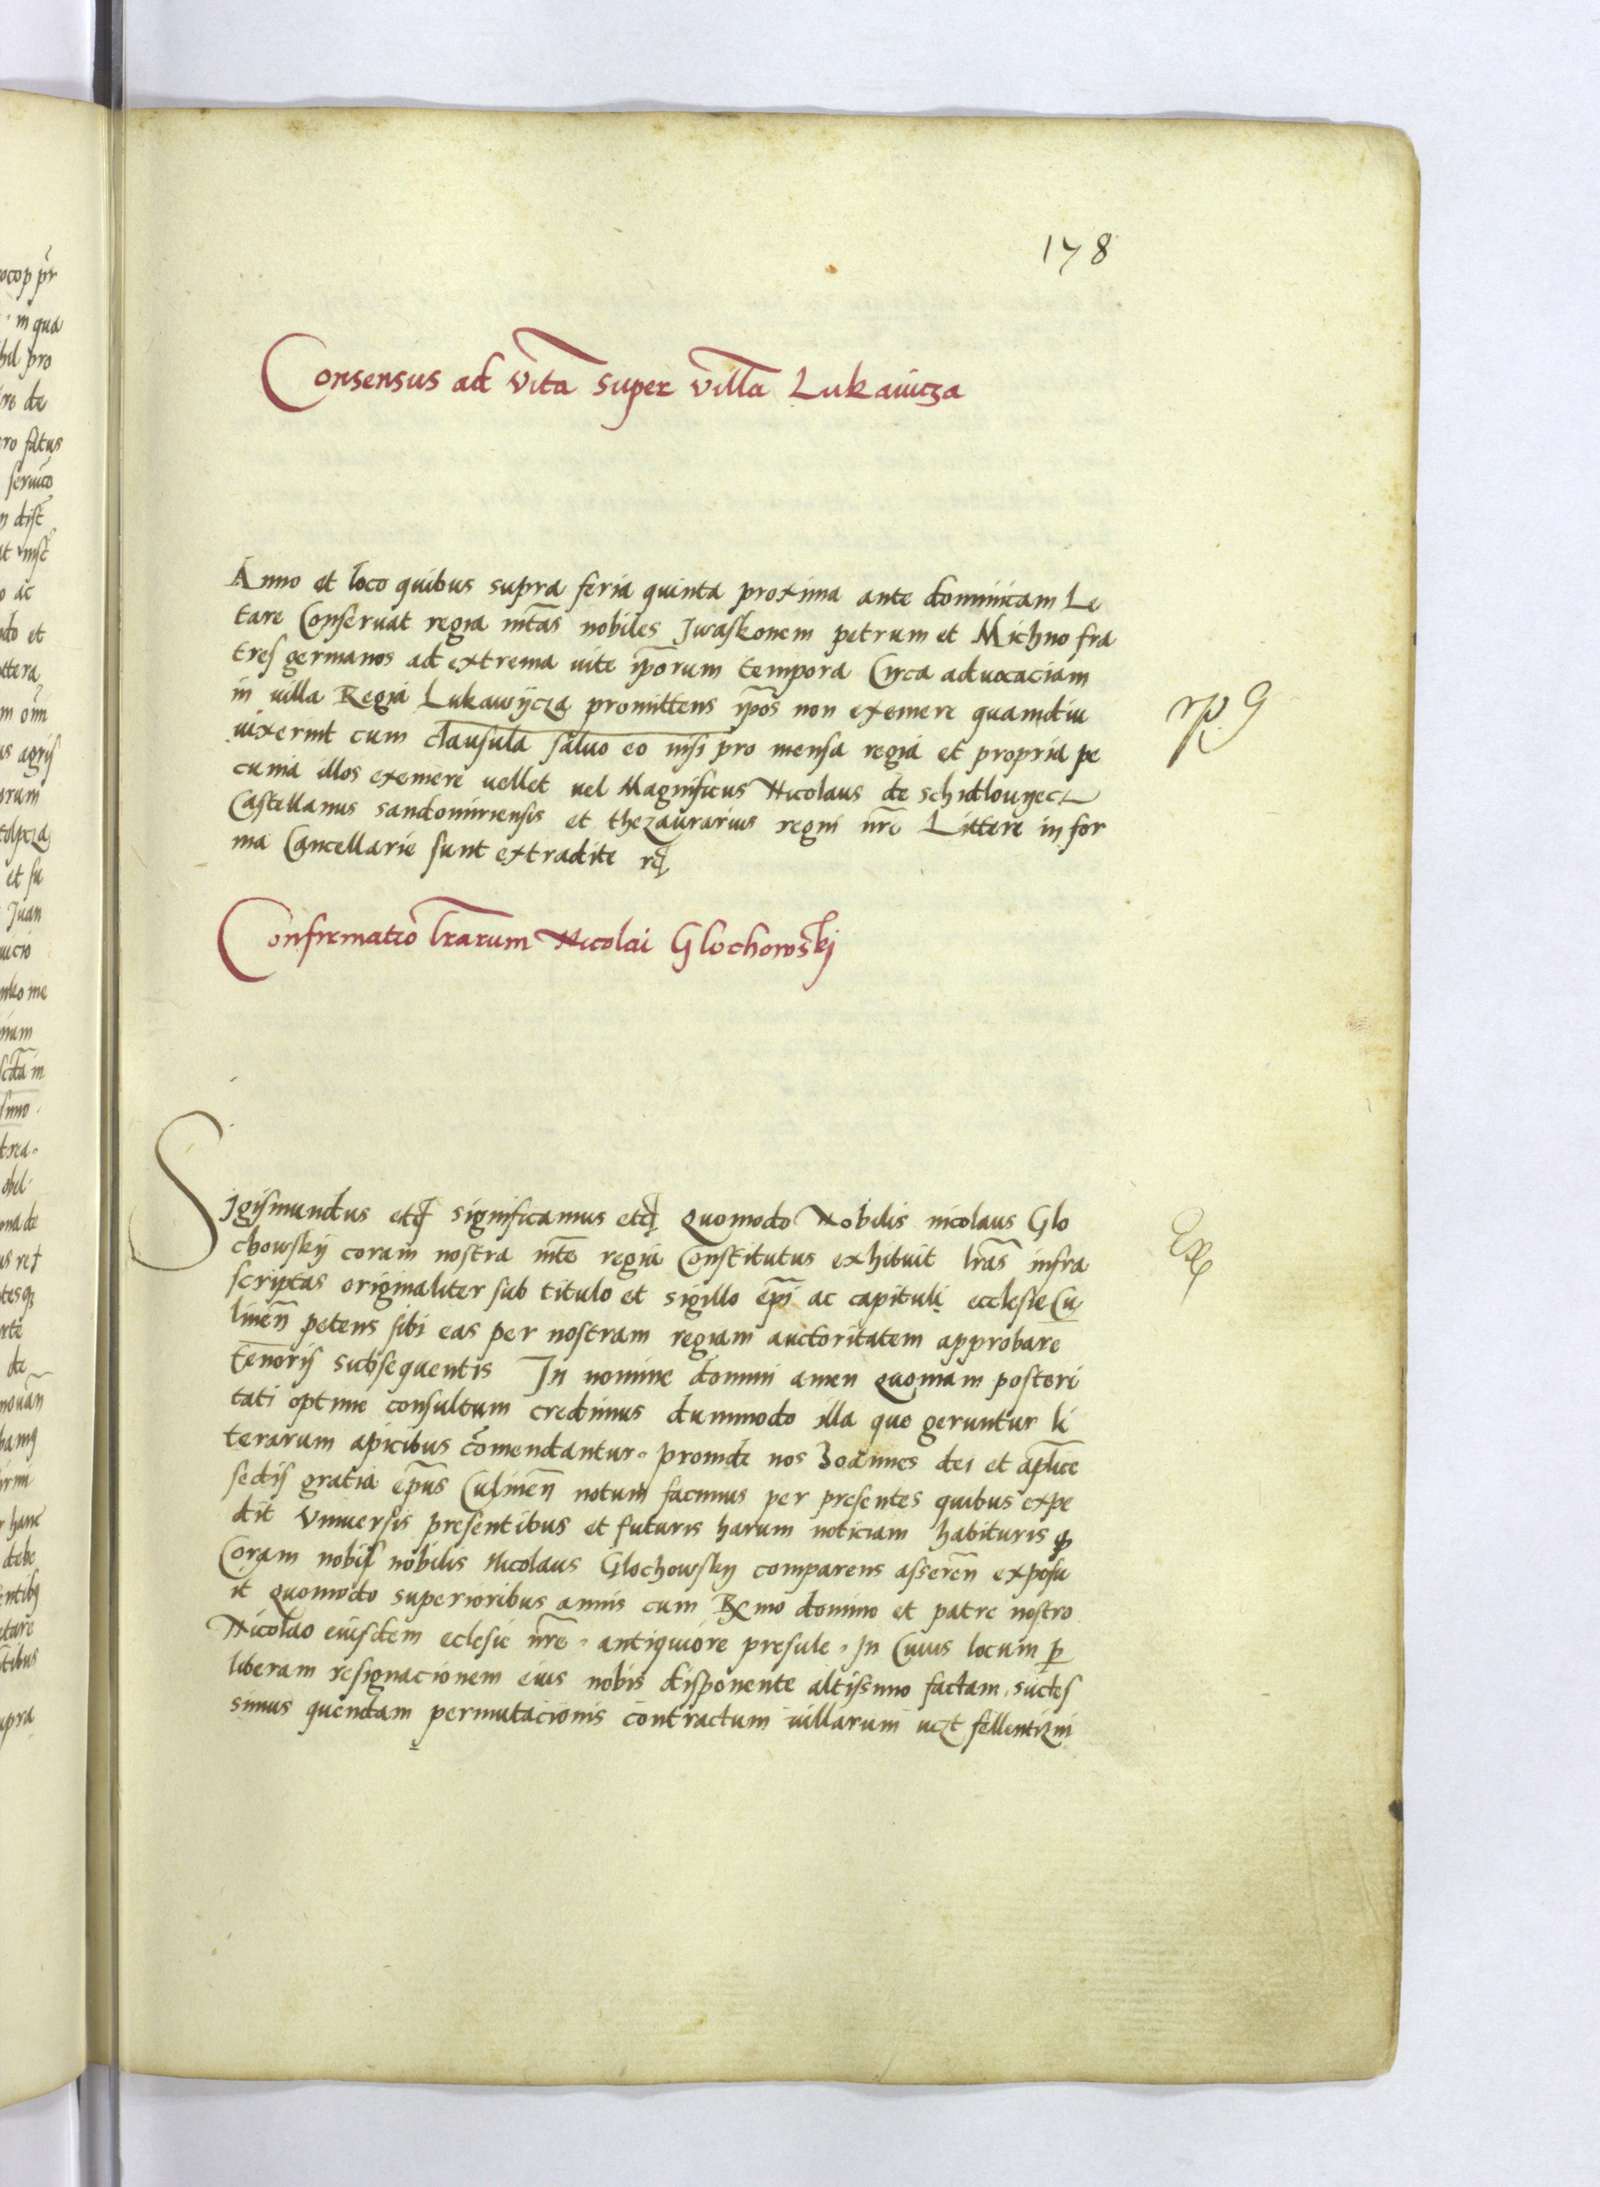 178
Consensus ad vita super villa Lukawicza
Anno et loco quibus supra feria quinta proxima ante dominicam Le
tare Conseruat regia mtas nobiles Jwaskonem petrum et Michno fra
tres germanos ad extrema vite iporum tempora Circa aduocaciam
in villa Regia Lukawycza promittens ipos non exemere quamdiu
vixerint cum clausula saluo eo nisi pro mensa regia et propria pe
cunia illos exemere vellet vel Magnificus Nicolaus de schidlouyecz
Castellanus sandomiriensis et thezaurarius regni nri Littere in for
ma Cancellarie sunt extradite
Confirmatio lrarum Nicolai Glochowskj
Sigismundus etc significamus etc quomodo Nobilis nicolaus Glo
chowskij coram nostra mte regia Constitutus exhibuit lras infra
scriptas originaliter sub titulo et sigillo epi ac capituli ecclesie Cu
lmen petens sibi eas per nostram regiam auctoritatem approbare
tenoris subsequentis In nomine domini amen quoniam posteri
tati optime consultum credimus dummodo illa que geruntur li
terarum apicibus comendantur. proinde nos Joannes dei et aplice
sedis gratia epus Culmen notum facimus per presentes quibus expe
dit vniuersis presentibus et futuris harum noticiam habituris
Coram nobis nobilis Nicolaus Glochowskij comparens asseren exposu
it quomodo superioribus annis cum Rmo domino et patre nostro
Nicolao eiusdem eclesie nre. antiquiore presule. In Cuius locum p
liberam resignacionem eius nobis disponente altissimo factam, succes
simus quendam permutacionis contractum villarum vczt